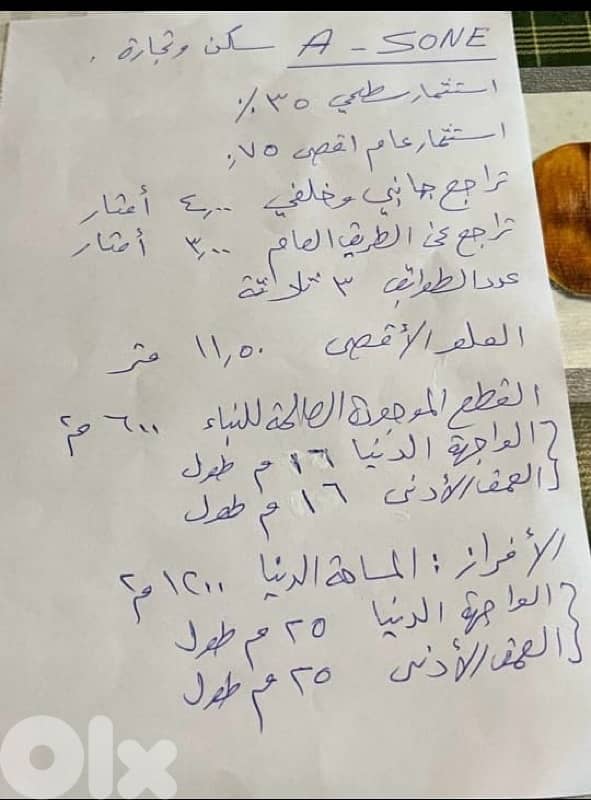 A - SONE سكن وتجارة .
استثمار سطحي ٣٥ %
استثمار عام اقصى ٧٥,
تراجع جانبي وخلفي ٤,٠٠ أمتار
تراجع عن الطريق العام ٣,٠٠ أمتار
عدد الطوابق ٣ ثلاثة
العلو الأقصى ١١,٥٠ متر
القطع الموجودة الصالحة للبناء ٦٠٠ م٢
الواجهة الدنيا ١٦ م طول
العمق الأدنى ١٦ م طول
الأفراز : المساحة الدنيا ١٢٠٠ م٢
الواجهة الدنيا ٢٥ م طول
العمق الأدنى ٢٥ م طول
OLX